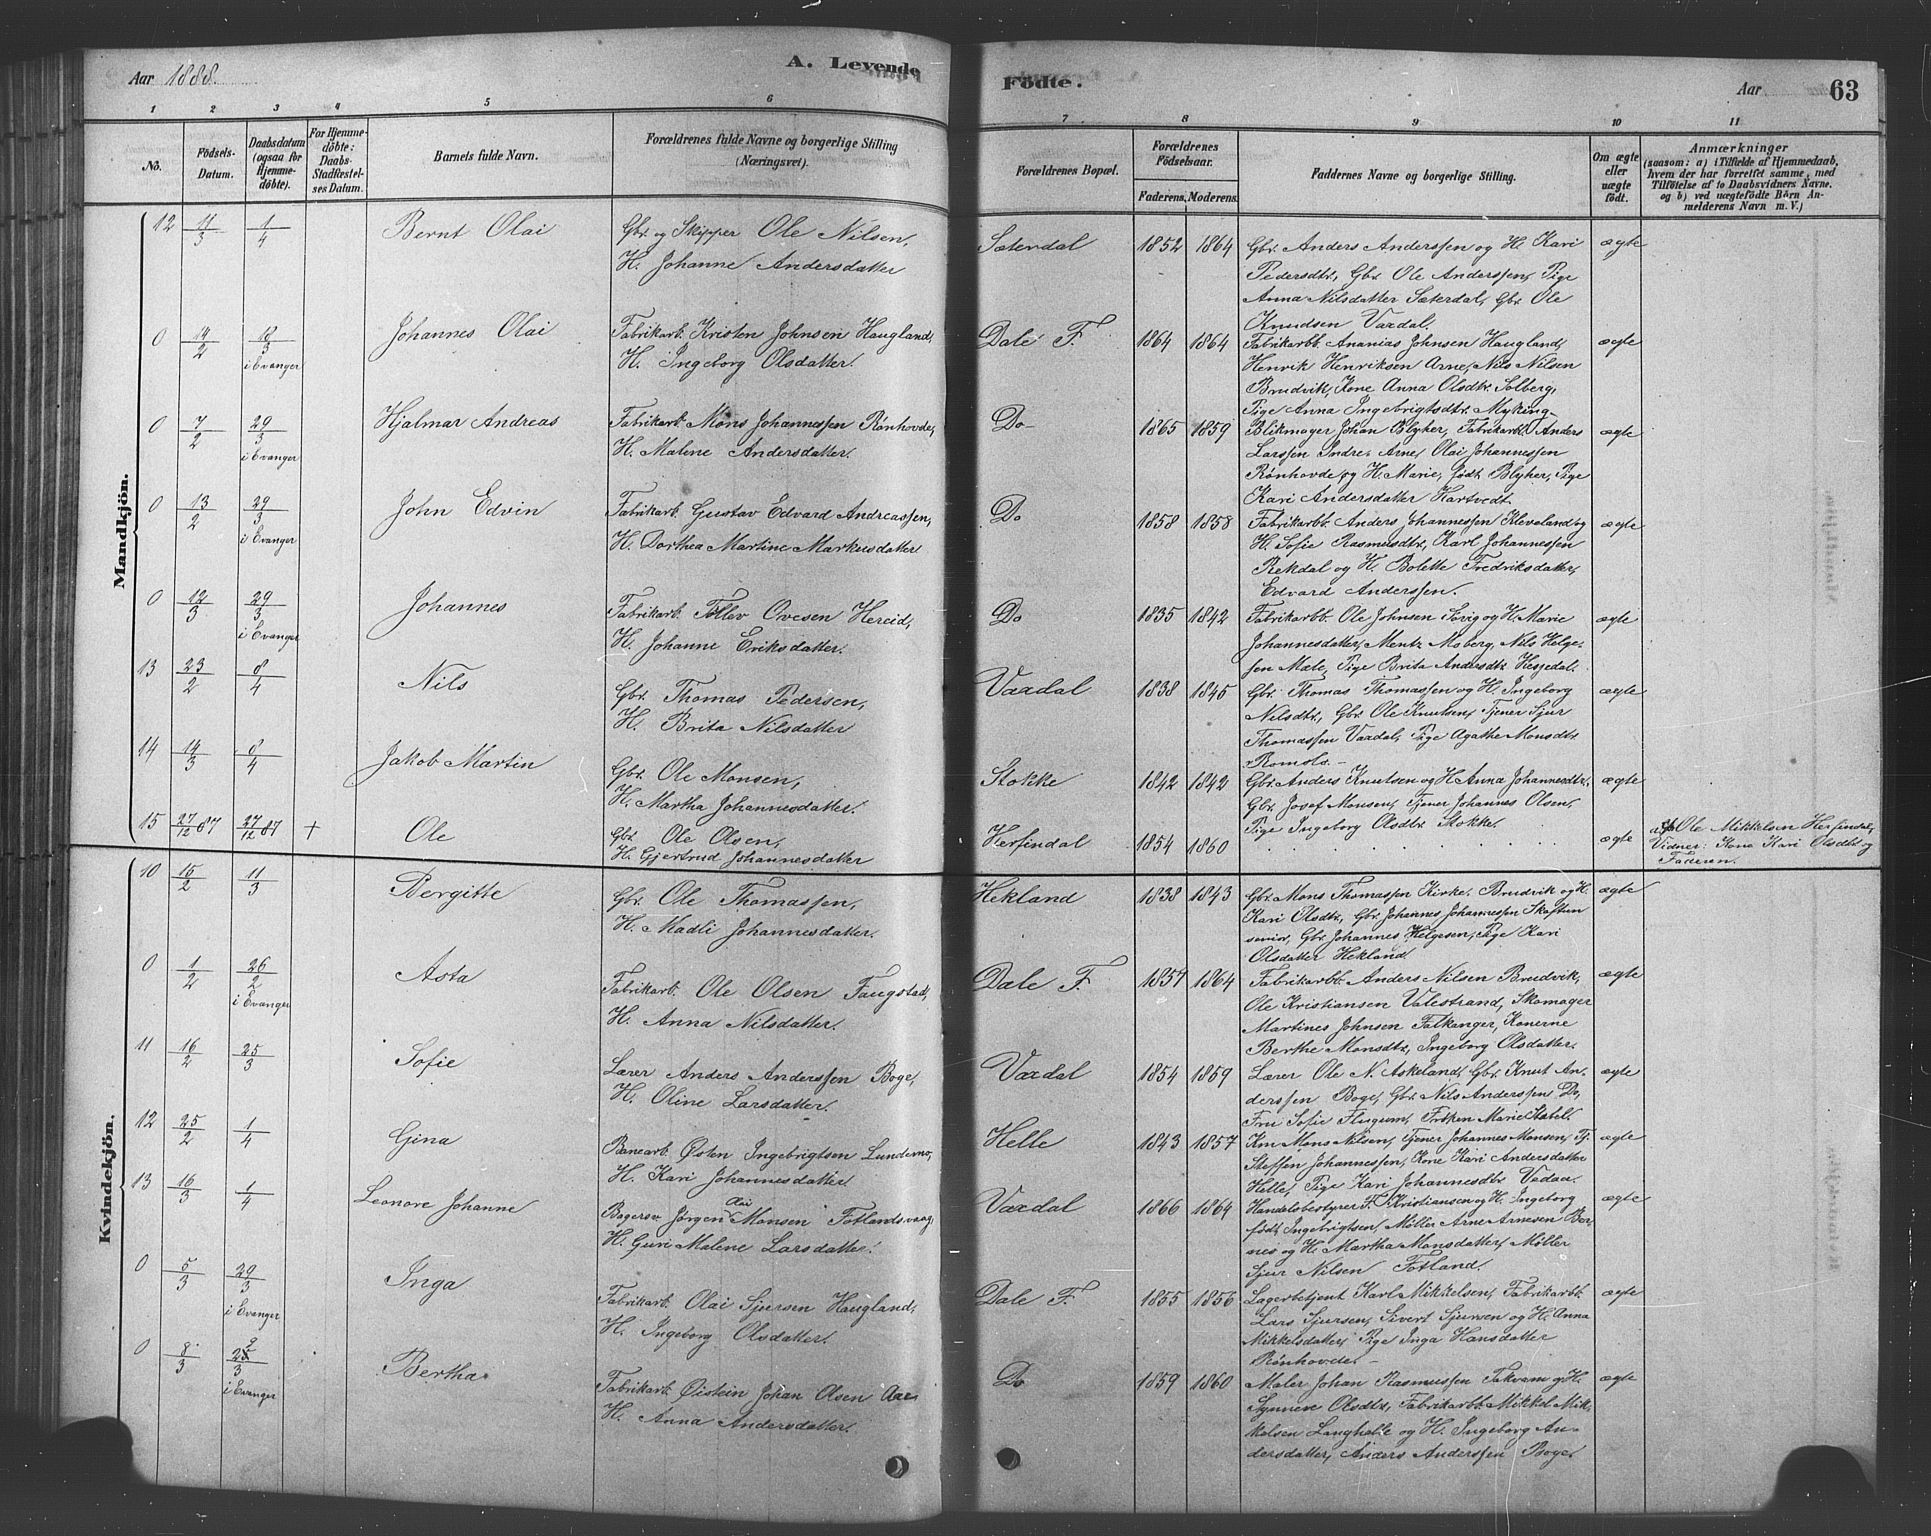 Aar 1888.
A. Levende
Födte.
Aar
63
1 2 3 4 5 6 7 8 9 10 11
No.
Födsels-Datum.
Daabsdatum (ogsaa for Hjemmedöbte).
For Hjemmedöbte: Daabs-Stadfæstelses Datum.
Barnets fulde Navn.
Forældrenes fulde Navne og borgerlige Stilling (Næringsvei).
Forældrenes Bopæl.
Forældrenes Födselsaar.
Faderens. Moderens.
Faddernes Navne og borgerlige Stilling.
Om ægte eller uægte födt.
Anmærkninger
(saasom: a) i Tilfælde af Hjemmedaab, hvem der har forrettet samme, med Tilföielse af to Daabsvidners Navne, og b) ved uægtefödte Börn Anmelderens Navn m. V.)
Mandkjön.
12 11/3 1/4 Bernt Olai
Gbr. og Skipper Ole Nilsen,
H. Johanne Andersdatter
Sæterdal 1852 1864
Gbr. Anders Anderssen og H. Kari
Pedersdtr, Gbr. Ole Anderssen, Pige
Anna Nilsdatter Sæterdal, Gbr. Ole
Knudsen Vaxdal.
ægte
0 14/2 18/3 i Evanger Johannes Olai
Fabrikarb. Kristen Johnsen Haugland,
H. Ingeborg Olsdatter.
Dale F. 1864 1864
Fabrikarbb. Ananias Johnsen Haugland,
Henrik Henriksen Arne, Nils Nilsen
Brudvik, Kone Anna Olsdtr. Solberg,
Pige Anna Ingebrigtsdtr. Myking
ægte
0 7/2 29/3 i Evanger Hjalmar Andreas
Fabrikarb. Mons Johannessen Rönhovde,
H. Malene Andersdatter.
Do 1865 1859
Blikmager Johan Blyker, Fabrikarbb. Anders
Larssen Indre-Arne, Olai Johannessen
Rönhovde og H. Marie, födt Blyker, Pige
Kari Andersdatter Hartvedt
ægte
0 13/2 29/3 i Evanger John Edvin
Fabrikarb. Gustav Edvard Andreassen,
H. Dorthea Martine Markusdatter
Do 1858 1858
Fabrikarbb. Anders Johannessen Kleveland og
H. Sofie Rasmusdtr, Karl Johannessen
Rekdal og H. Bolette Fredriksdatter,
Edvard Anderssen.
ægte
0 12/3 29/3 i Evanger Johannes
Fabrikarb. Tollev Ovesen Hereid,
H. Johanne Eriksdatter.
Do 1835 1842
Fabrikarbb. Ole Johnsen Sörig og H. Marie
Johannesdatter, Mentz Moberg, Nils Helge-
sen Mæle, Pige Brita Andersdtr. Hessedal.
ægte
13 23/2 8/4 Nils
Gbr. Thomas Pedersen,
H. Brita Nilsdatter
Vaxdal 1838 1845
Gbr. Thomas Thomassen og H. Ingeborg
Nilsdtr, Gbr. Ole Knutsen, Tjener Sjur
Thomassen Vaxdal, Pige Agathe Monsdtr.
Romslo.
ægte
14 14/3 8/4 Jakob Martin
Gbr. Ole Monsen,
H. Martha Johannesdatter.
Stokke 1842 1842
Gbr. Anders Knutsen og H. Anna Johannesdtr.
Gbr. Josef Monsen, Tjener Johannes Olsen,
Pige Ingeborg Olsdtr. Stokke.
ægte
15 27/12 87 27/12 87 + Ole
Gbr. Ole Olsen,
H. Gjertrud Johannesdatter
Herfindal 1854 1860
ægte
Ole Mikkelsen Herfindal,
Vidner: Kone Kari Olsdtr og
Faderen.
Kvindekjön.
10 15/2 11/3 Bergitte
Gbr. Ole Thomassen,
H. Madli Johannesdatter.
Hekland 1838 1843
Gbr. Mons Thomassen Kirke-Brudvik og H.
Kari Olsdtr, Gbr. Johannes Johannessen Skaftun
senior, Gbr. Johannes Helgesen, Pige Kari
Olsdatter Hekland
ægte
0 1/2 26/2 i Evanger Asta
Fabrikarb. Ole Olsen Faugstad,
H. Anna Nilsdatter.
Dale F. 1857 1864
Fabrikarbb. Anders Nilsen Brudvik,
Ole Kristiansen Valestrand, Skomager
Martines Johnsen Falkanger, Konerne
Berthe Monsdtr, Ingeborg Olsdatter.
ægte
11 16/2 25/3 Sofie
Lærer Anders Anderssen Boge,
H. Oline Larsdatter.
Vaxdal 1854 1859
Lærer Ole N. Askeland, Gbr. Knut An-
derssen Boge, Gbr. Nils Anderssen Do,
Fru Sofie Flugum, Fröken Marie Stabel.
ægte
12 25/2 1/4 Gina
Banearb. Östen Ingebrigtsen Lundemo,
H. Kari Johannesdatter.
Helle 1843 1857
Km. Mons Nilsen, Tjener Johannes Monsen, Tj.
Steffen Johannessen, Kone Kari Andersdatter
Helle, Pige Kari Johannesdtr. Vedaa.
ægte
13 16/3 1/4 Leonore Johanne
Bagersv. Jörgen Olai Monsen Fotlandsvaag,
H. Guri Malene Larsdatter.
Vaxdal 1866 1864
Handelsbestyrer F. Kristiansen og H. Ingeborg
födt Ingebrigtsen, Möller Arne Arnesen Ber-
nes og H. Martha Monsdatter, Möller
Sjur Nilsen Fotland.
ægte
0 5/3 29/3 i Evanger Inga
Fabrikarb. Olai Sjursen Haugland,
H. Ingeborg Olsdatter.
Dale F. 1855 1856
Lagerbetjent Karl Mikkelsen, Fabrikarbb.
Lars Sjursen, Sivert Sjursen og H. Anna
Mikkelsdatter, Pige Inga Hansdatter
Rönhovde.
ægte
0 8/3 29/3 i Evanger Bertha
Fabrikarb. Öistein Johan Olsen Aare
H. Anna Andersdatter.
Do 1859 1860
Maler Johan Rasmussen Takvam og H.
Synneve Olsdtr, Fabrikarbb. Mikkel Mik-
kelsen Langhelle og H. Ingeborg An-
dersdatter, Anders Anderssen Boge.
ægte